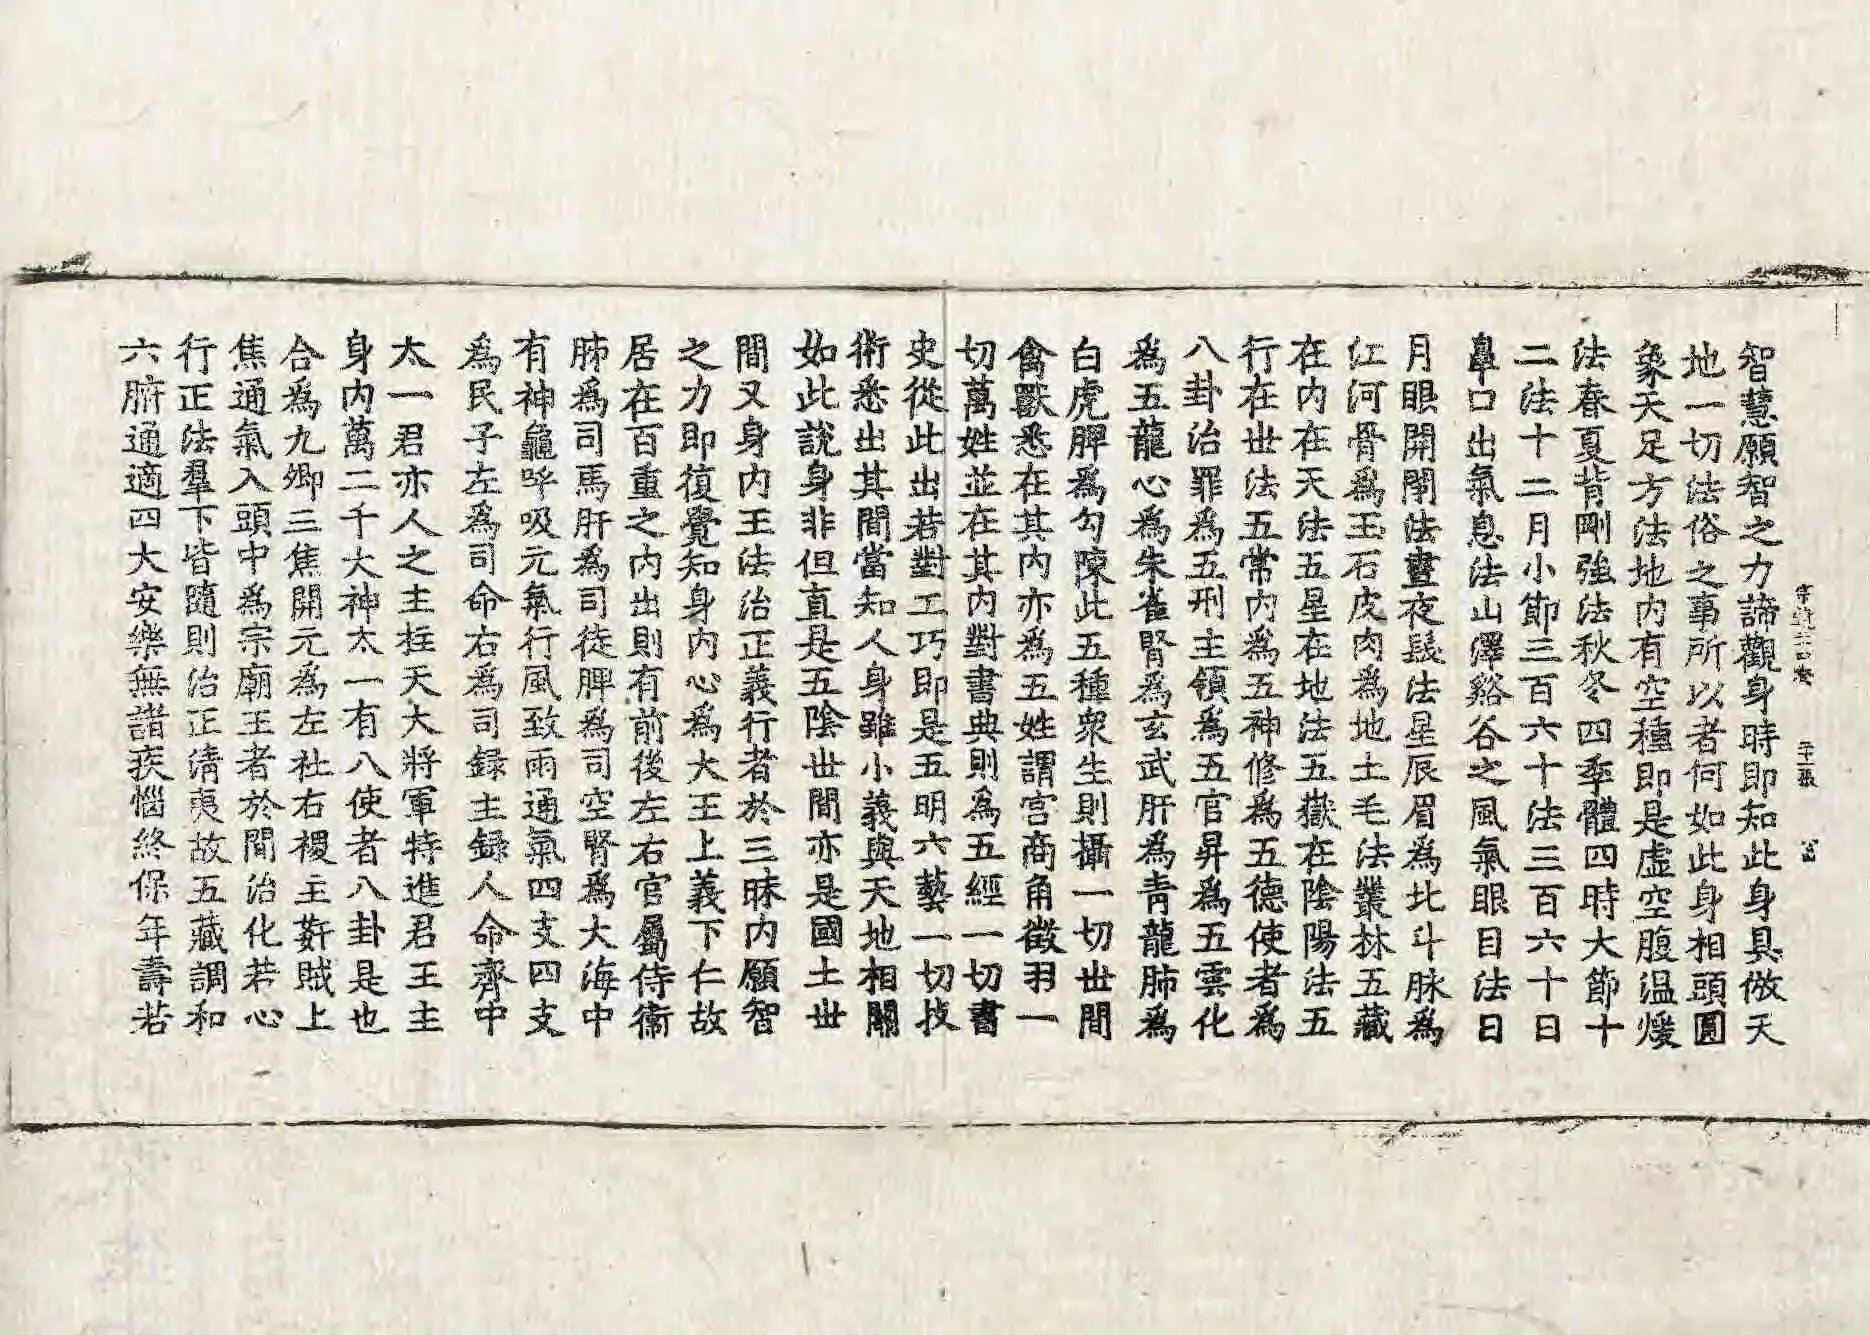 智慧願智之力諦觀身時即知此身具倣天
地一切法俗之事所以者何如此身相頭圓
象天足方法地內有空種即是虛空腹溫煖
法春夏背剛強法秋冬四季體四時大節十
二法十二月小節三百六十法三百六十日
鼻口出氣息法山澤谿谷之風氣眼目法日
月眼開閉法晝夜髮法星辰眉為北斗脉為
江河骨為玉石皮肉為地土毛法叢林五藏
在內在天法五星在地法五嶽在陰陽法五
行在世法五常內為五神修為五德使者為
八卦治罪為五刑主領為五官昇為五雲化
為五龍心為朱雀腎為玄武肝為青龍肺為
白虎脾為勾陳此五種衆生則攝一切世間
禽獸悉在其內亦為五姓謂宮商角徵羽一
切萬姓並在其內對書典則為五經一切書
史從此出若對工巧即是五明六藝一切技
術悉出其間當知人身雖小義與天地相關
如此說身非但直是五陰世間亦是國土世
間又身內王法治正義行者於三昧內願智
之力即復覺知身內心為大王上義下仁故
居在百重之內出則有前後左右官屬侍衛
肺為司馬肝為司徒脾為司空腎為大海中
有神龜呼吸元氣行風致雨通氣四支四支
為民子左為司命右為司録主録人命齊中
太一君亦人之主柱天大將軍特進君王主
身內萬二千大神太一有八使者八卦是也
合為九卿三焦開元為左社右稷主姧賊上
焦通氣入頭中為宗廟王者於間治化若心
行正法羣下皆隨則治正清夷故五藏調和
六腑通適四大安樂無諸疾惱終保年壽若